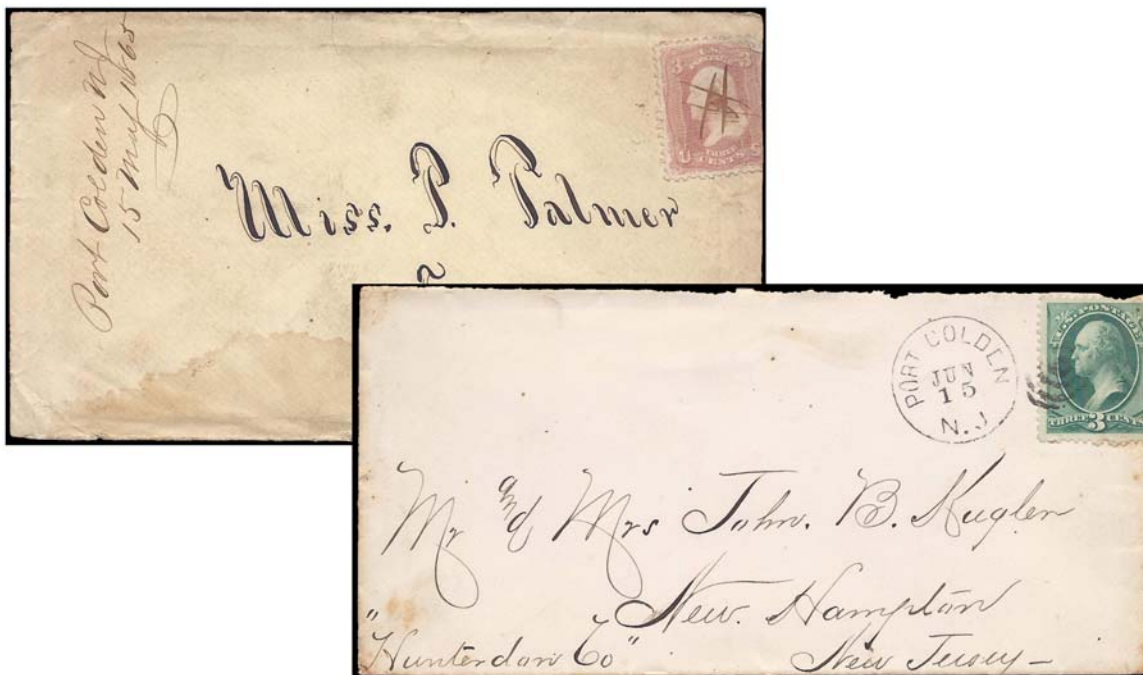 Port Colden NJ
15 May 1865
U.S.
3 3
THREE
CENTS
Miss. P. Palmer
PORT COLDEN
JUN
15
N.J.
U.S. POSTAGE
THREE 3 CENTS
Mr and Mrs John. B. Kugler
New. Hampton
"Hunterdon Co" New Jersey -